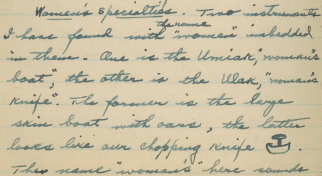 Women's specialties. Two instruments
the name
I have found with "women" imbedded
in them. One is the Umiak, "woman's
boat", the other is the Ulak, "woman's
knife". The former is the large
skin boat with oars, the latter
looks like our chopping knife
The name "women's" here sounds